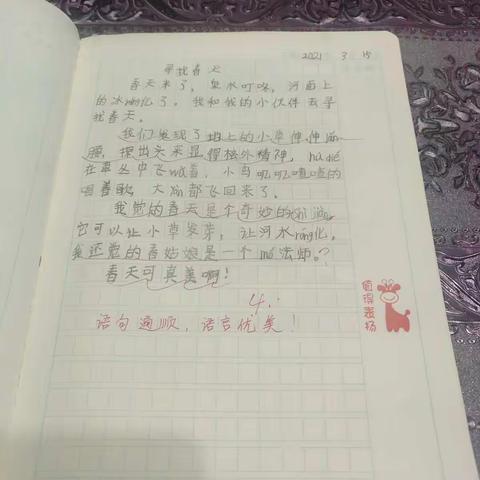 2021 3 15
寻找春天
春天来了，泉水叮咚，河面上
的冰róng化了。我和我的小伙伴去寻
找春天。
我们发现了地上的小草伸伸
腰，探出头来显得格外精神，hú dié
在草丛中飞wǔ着，小鸟叽叽喳喳的
唱着歌，大yàn都飞回来了。
我觉的春天是个奇妙的
它可以让小草发芽，让河水róng化，
我还觉的春姑娘是一个mó法师。
春天可真美啊！
语句通顺，语言优美！
值得表扬